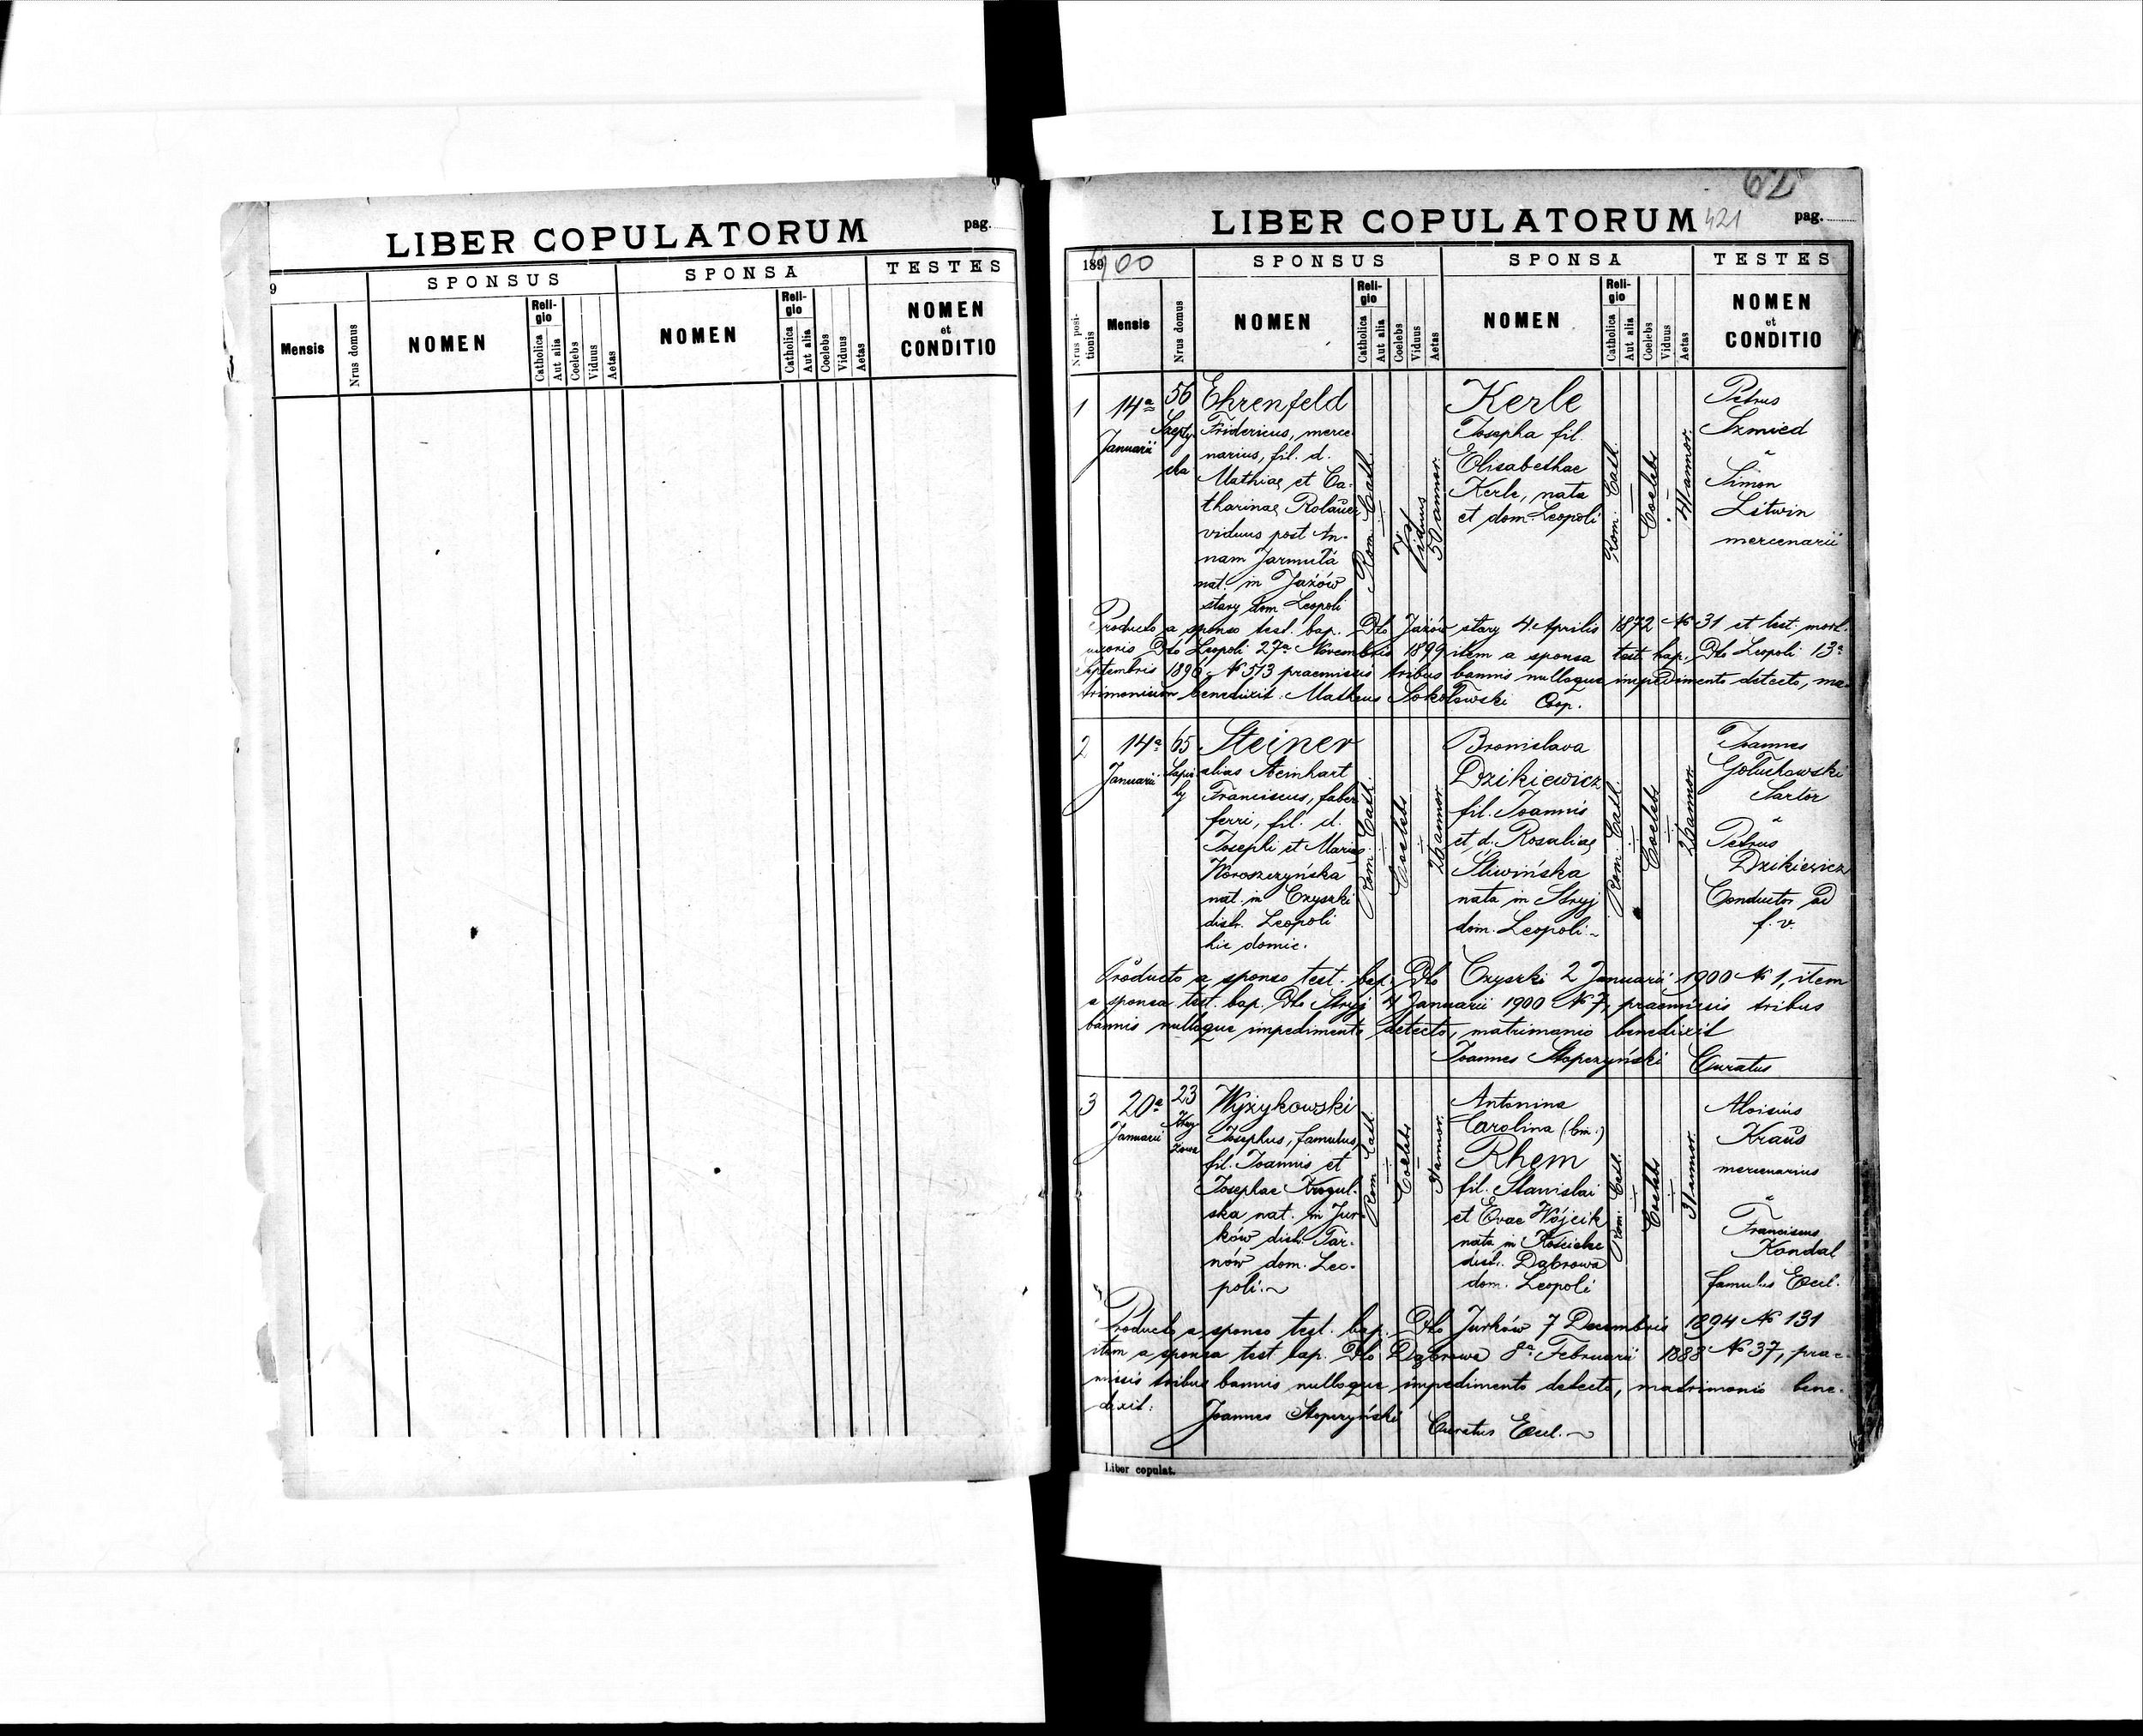 LIBER COPULATORUM
pag.
9
SPONSUS
SPONSA
TESTES
Mensis
Nrus domus
NOMEN
Reli-
gio
Catholica
Aut alia
Coelebs
Viduus
Aetas
NOMEN
Reli-
gio
Catholica
Aut alia
Coelebs
Viduus
Aetas
NOMEN
et
CONDITIO
62
LIBER COPULATORUM 421
pag.
189
900
SPONSUS
SPONSA
TESTES
Nrus posi-
tionis
Mensis
Nrus domus
NOMEN
Reli-
gio
Catholica
Aut alia
Coelebs
Viduus
Aetas
NOMEN
Reli-
gio
Catholica
Aut alia
Coelebs
Viduus
Aetas
NOMEN
et
CONDITIO
1
14a
Januarii
56
Szepty-
cka
Ehrenfeld
Fridericus, merce-
narius, fil. d.
Mathiae et Ca-
tharinae
viduus post An-
nam Jarmuła
nat. in Jażów
stary dom. Leopoli
Rom. Cath.
Viduus
50 annor.
Kerle
Josepha fil.
Elisabethae
Kerle, nata
et dom. Leopoli
Rom. Cath.
Coelebs
41 annor.
Petrus
Szmied
Simon
Litwin
mercenarii
Producto a sponso test. bap. Dto Jażów stary 4 Aprilis 1872 No 31 et test. mort.
uxoris Dto Leopoli 27a Novembris 1899 item a sponsa test. bap. Dto Leopoli 13a
Septembris 1896 No 573 praemissis tribus bannis nulloque impedimento detecto, ma-
trimonium benedixit Matheus Sokołowski Coop.
2
14a
Januarii
65
Sapie-
hy
Steiner
alias Steinhart
Franciscus, faber
ferri, fil. d.
Josephi et Mariae
Woroszczyńska
nat. in Czyszki
distr. Leopoli
hic domic.
Rom. Cath.
Coelebs
26 annor.
Bronislava
Dzikiewicz
fil. Joannis
et d. Rosaliae
Śliwińska
nata in Stryj
dom. Leopoli
Rom. Cath.
Coelebs
26 annor.
Joannes
Gołuchowski
Sartor
Petrus
Dzikiewicz
Conductor ad
f. v.
Producto a sponso test. bap. Dto Czyszki 2 Januarii 1900 No 1, item
a sponsa test. bap. Dto Stryj 4 Januarii 1900 No 7, praemissis tribus
bannis nulloque impedimento detecto, matrimonio benedixit
Joannes Stopczyński Curatus
3
20a
Januarii
23
Wyżykowski
Josephus, famulus
fil. Joannis et
Josephae Kregul-
ska nat. in Jur-
ków distr. Tar-
nów dom. Leo-
poli.
Rom. Cath.
Coelebs
31 annor.
Antonina
Carolina (bin.)
Rhem
fil. Stanislai
et Evae Wójcik
nata in
distr. Dąbrowa
dom. Leopoli
Rom. Cath.
Coelebs
31 annor.
Aloisius
Kraus
mercenarius
Franciscus
Kondal
famulus Eccl.
Producto a sponso test. bap. Dto Jurków 7 Decembris 1894 No 131
item a sponsa test. bap. Dto Dąbrowa 8a Februarii 1888 No 37, prae-
missis tribus bannis nulloque impedimento detecto, matrimonio bene-
dixit:
Joannes Stopczyński Curatus Eccl.
Liber copulat.